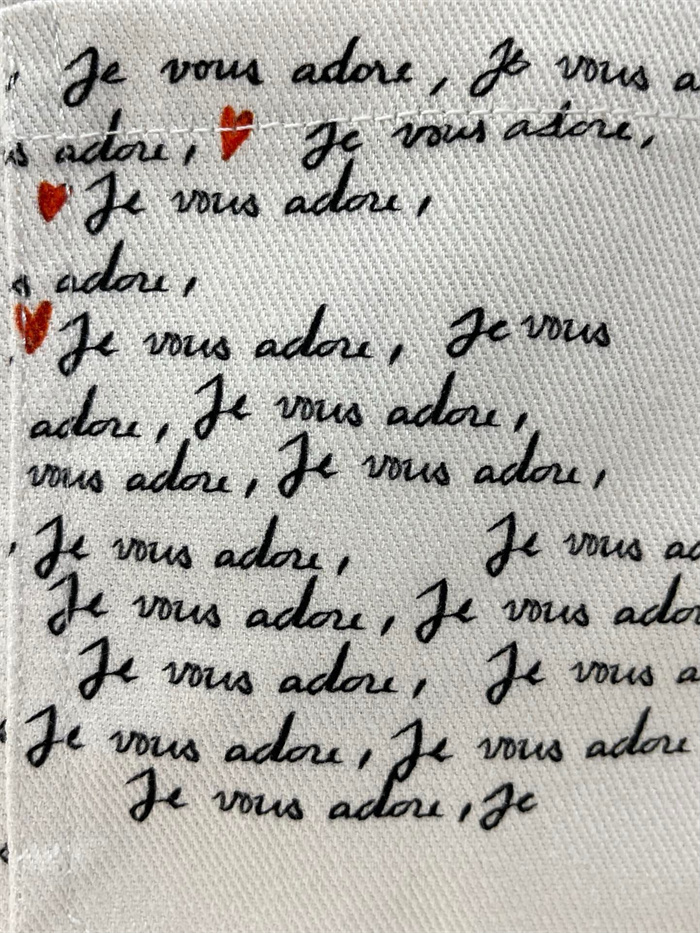 Je vous adore, Je vous a
s adore, Je vous adore,
Je vous adore,
s adore,
Je vous adore, Je vous
adore, Je vous adore,
vous adore, Je vous adore,
, Je vous adore, Je vous ad
Je vous adore, Je vous ador
Je vous adore, Je vous a
Je vous adore, Je vous adore
Je vous adore, Je